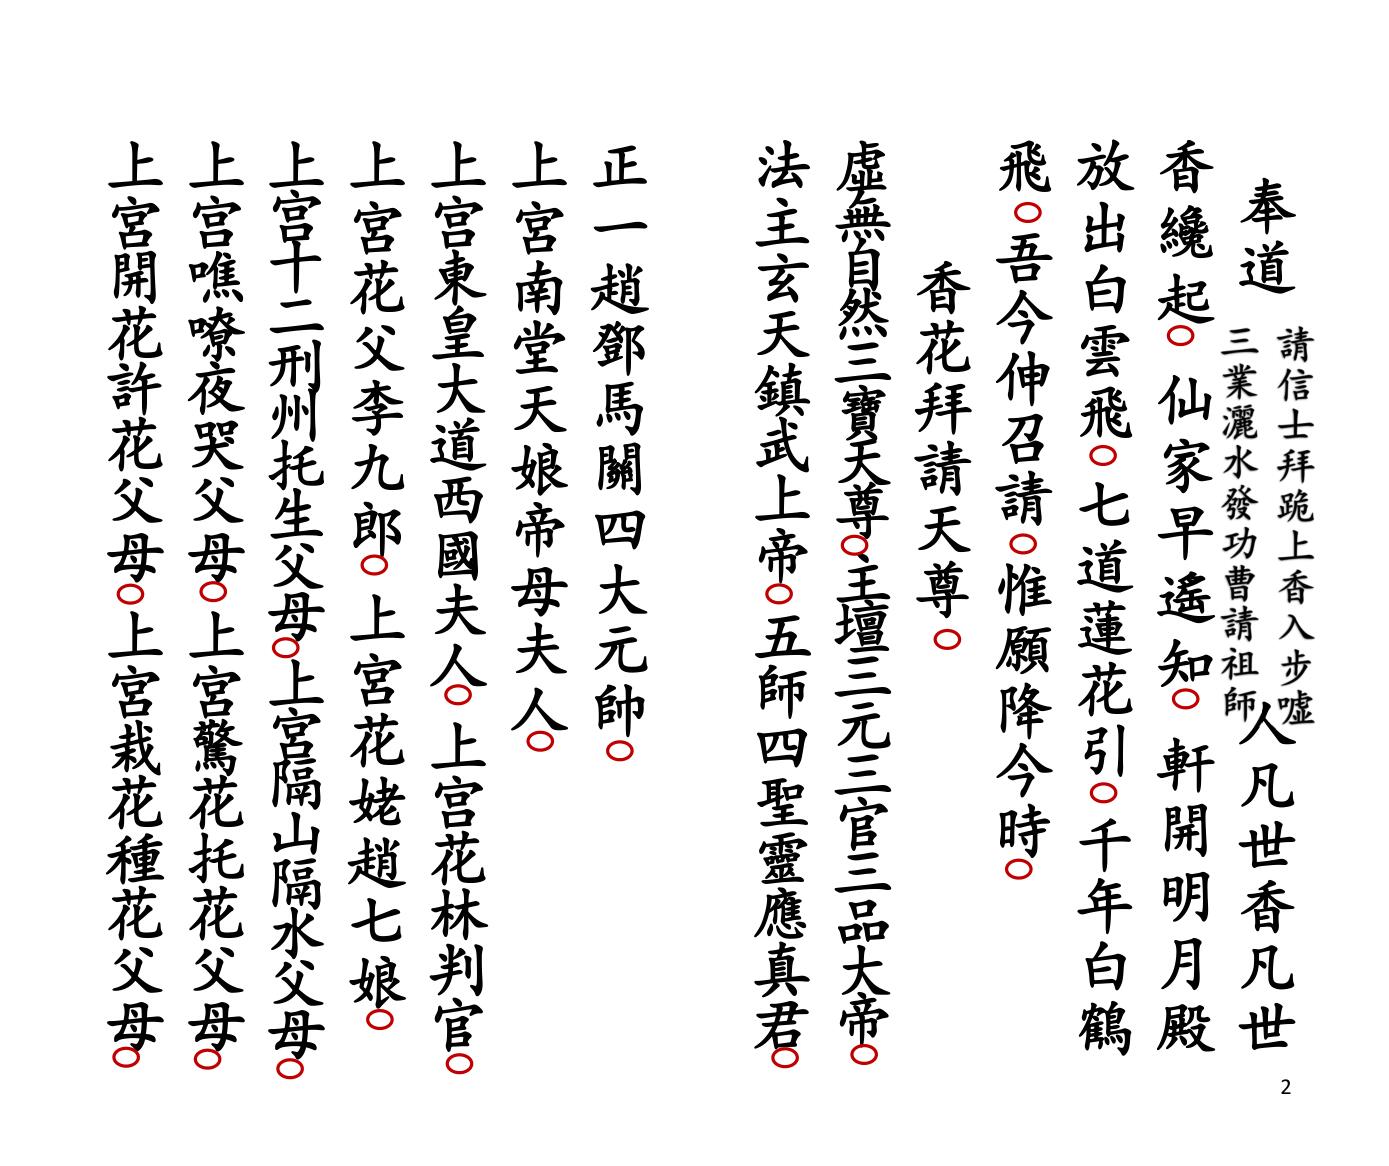 奉道
請信士拜跪上香入步噓
三業灑水發功曹請祖師
人凡世香凡世
香纔起○仙家早遙知○軒開明月殿
放出白雲飛○七道蓮花引○千年白鶴
飛○吾今伸召請○惟願降今時○
香花拜請天尊○
虛無自然三寶天尊○主壇三元三官三品大帝○
法主玄天鎮武上帝○五師四聖靈應真君○
正一趙鄧馬關四大元帥○
上宮南堂天娘帝母夫人○
上宮東皇大道西國夫人○上宮花林判官○
上宮花父李九郎○上宮花姥趙七娘○
上宮十二刑州托生父母○上宮隔山隔水父母○
上宮噍嘹夜哭父母○上宮驚花托花父母○
上宮開花許花父母○上宮栽花種花父母○
2